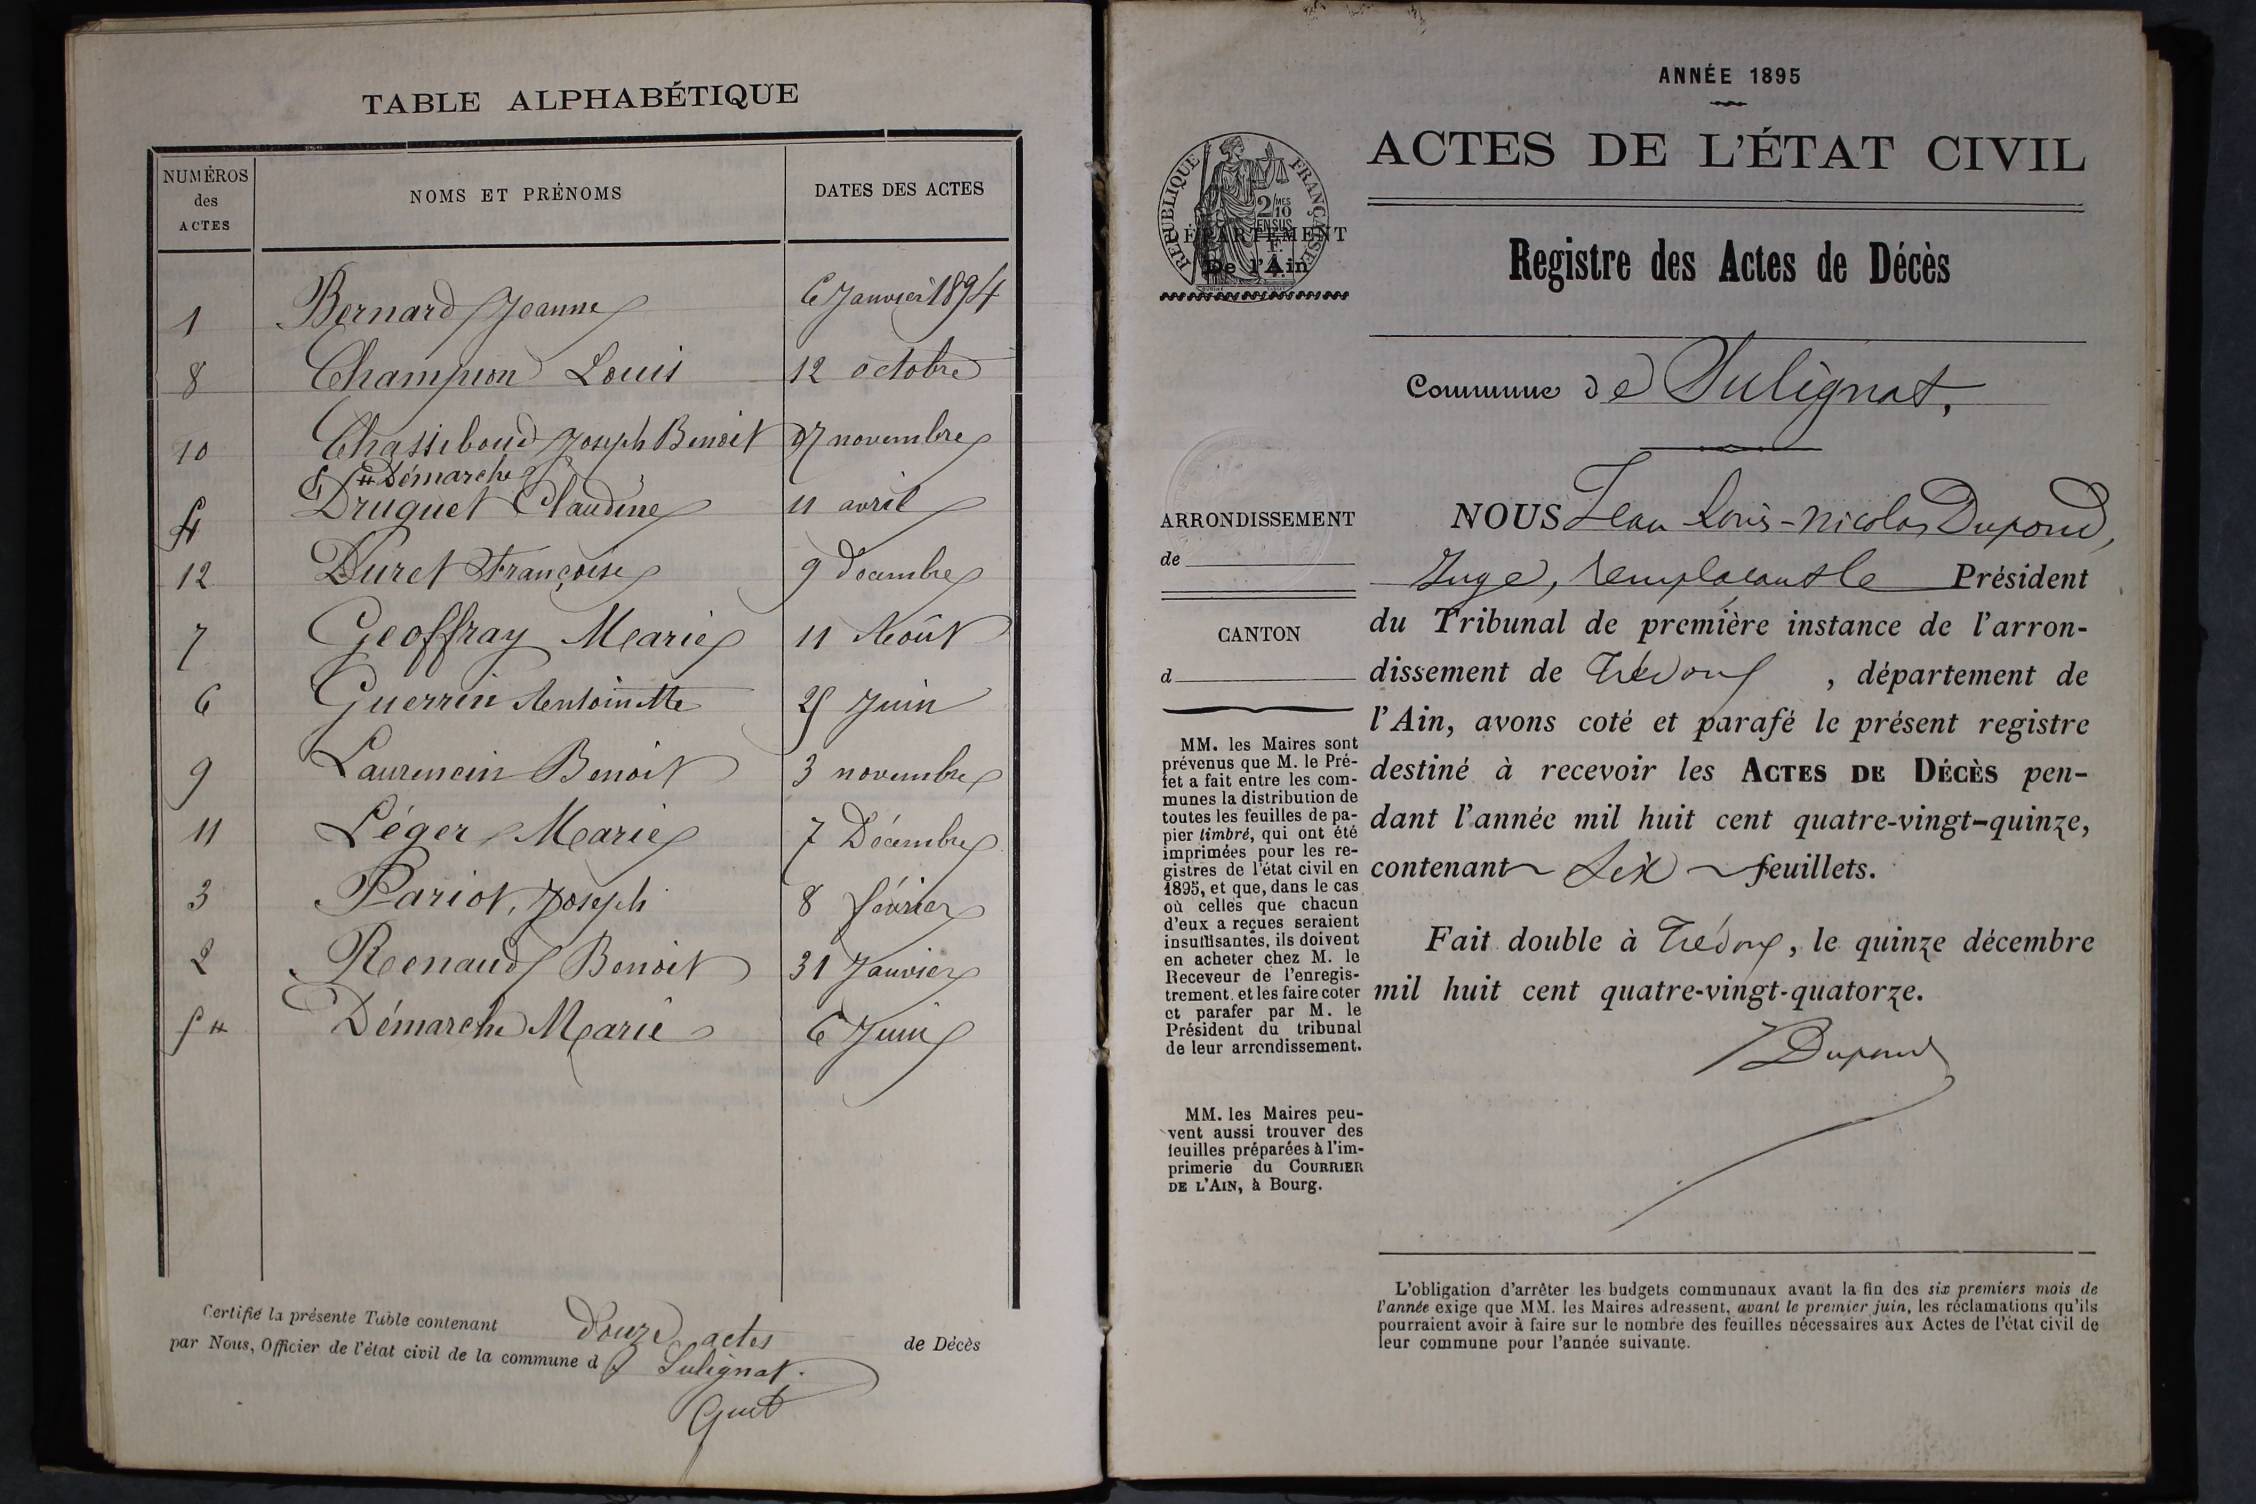 TABLE ALPHABÉTIQUE
NUMÉROS
des
ACTES
NOMS ET PRÉNOMS
DATES DES ACTES
1 Bernard Jeanne 6 Janvier 1894
8 Champion Louis 12 octobre
10 Chassiboud Joseph Benoit novembre
# Démarche
4 Druguet Claudine 11 avril
12 Duret Françoise 9 Décembre
7 Geoffray Marie 11 Août
6 Guerrin Antoinette 25 Juin
9 Laurencin Benoit 3 novembre
11 Léger Marie 7 Décembre
3 Pariot, Joseph 8 février
2 Renaud Benoit 31 Janvier
5 # Démarche Marie 6 Juin
Certifié la présente Table contenant douze actes de Décès
par Nous, Officier de l'état civil de la commune de Sulignat.
ANNÉE 1895
ACTES DE L'ÉTAT CIVIL
RÉPUBLIQUE FRANÇAISE
2/10 MES
EN SUS
DÉPARTEMENT
De l'Ain
Registre des Actes de Décès
Commune de Sulignat.
ARRONDISSEMENT
de
CANTON
d
MM. les Maires sont
prévenus que M. le Pré-
fet a fait entre les com-
munes la distribution de
toutes les feuilles de pa-
pier timbré, qui ont été
imprimées pour les re-
gistres de l'état civil en
1895, et que, dans le cas
où celles que chacun
d'eux a reçues seraient
insuffisantes, ils doivent
en acheter chez M. le
Receveur de l'enregis-
trement et les faire coter
et parafer par M. le
Président du tribunal
de leur arrondissement.
MM. les Maires peu-
vent aussi trouver des
feuilles préparées à l'im-
primerie du COURRIER
DE L'AIN, à Bourg.
NOUS Jean Louis-Nicolas Dupond,
Juge, remplacant le Président
du Tribunal de première instance de l'arron-
dissement de Trévoux, département de
l'Ain, avons coté et parafé le présent registre
destiné à recevoir les ACTES DE DÉCÈS pen-
dant l'année mil huit cent quatre-vingt-quinze,
contenant six feuillets.
Fait double à Trévoux, le quinze décembre
mil huit cent quatre-vingt-quatorze.
Dupond
L'obligation d'arrêter les budgets communaux avant la fin des six premiers mois de
l'année exige que MM. les Maires adressent, avant le premier juin, les réclamations qu'ils
pourraient avoir à faire sur le nombre des feuilles nécessaires aux Actes de l'état civil de
leur commune pour l'année suivante.